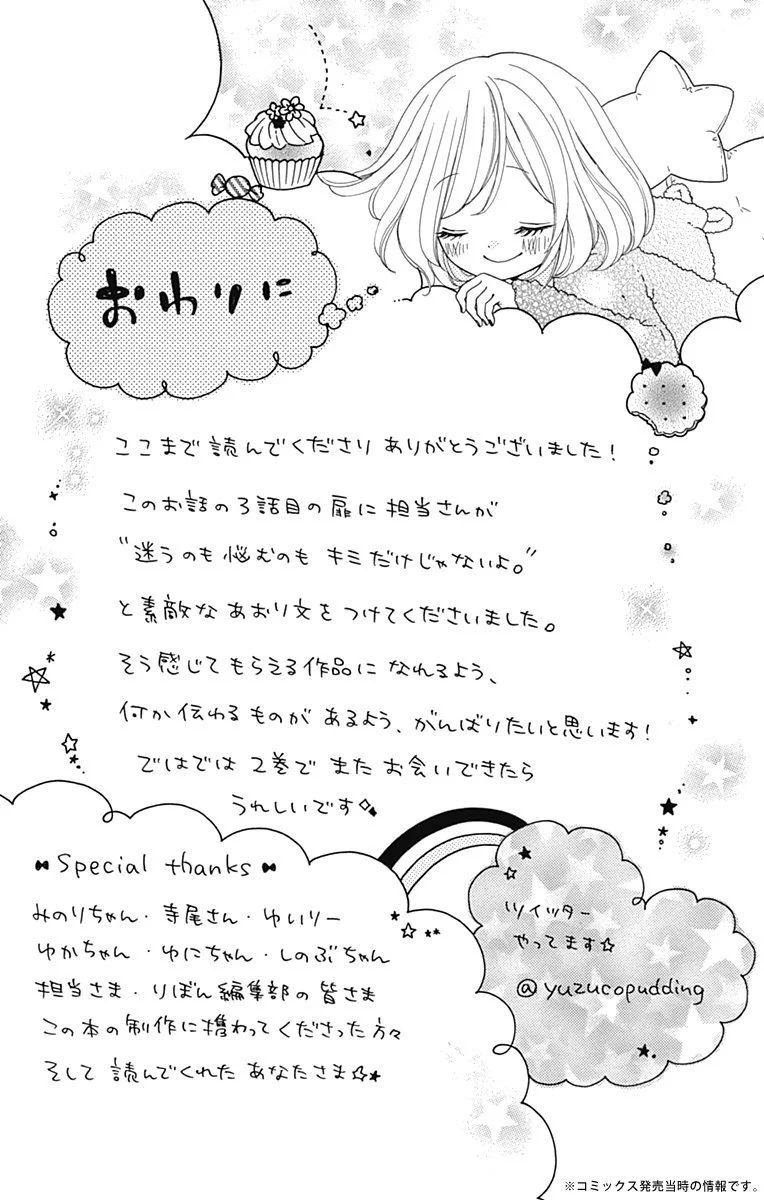 おわりに
ここまで読んでくださり ありがとうございました!
このお話の3話目の扉に担当さんが
"迷うのも悩むのも キミだけじゃないよ。"
と素敵な あおり文を つけてくださいました。
そう感じて もらえる作品に なれるよう、
何か伝わるものが あるよう、がんばりたいと思います!
ではでは 2巻で また お会いできたら
うれしいです
Special thanks
みのりちゃん・寺尾さん・ゆいりー
ゆかちゃん・ゆにちゃん・しのぶちゃん
担当さま・りぼん編集部の皆さま
この本の制作に携わってくださった方々
そして 読んでくれた あなたさま☆★
ツイッター
やってます☆
@yuzucopudding
※コミックス発売当時の情報です。